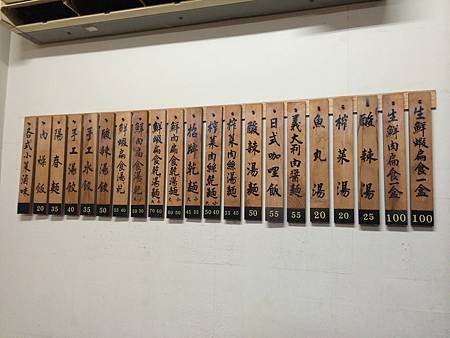 各式小菜滷味
肉燥飯
20
陽春麵
35
手工湯餃
40
手工水餃
35
酸辣湯餃
50
鮮蝦扁食湯乾
鮮肉扁食湯乾
鮮蝦扁食乾湯麵
鮮肉扁食乾湯麵
招牌乾麵
榨菜肉絲乾麵
50 40
榨菜肉絲湯麵
酸辣湯麵
50
日式咖哩飯
55
義大利肉醬麵
55
魚丸湯
20
榨菜湯
20
酸辣湯
25
生鮮肉扁食一盒
100
生鮮蝦扁食一盒
100